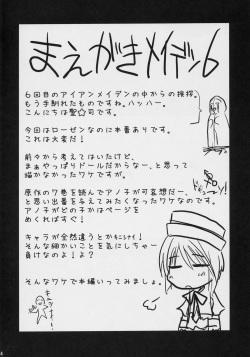 まえがきメイデン6
6回目のアイアンメイデンの中からの挨拶。
もう手馴れたものですね。ハッハー。
こんにちは聖☆司です。
今回はローゼンなのに本番ありです。
これは大変だ!
前々から考えてはいたけど、
まぁやっぱりドールだからなー、と思って
描かなかったワケですが、
原作の7巻を読んでアノ子が可哀想だー、
と思い出番を与えてみたくなったワケです。
アノ子がどの子かはページを
めくればすぐ!
キャラが全然違うとかキニシナイ!
そんな細かいことを気にしちゃー
負けなのよ!
そんなワケで本編いってみましょ。